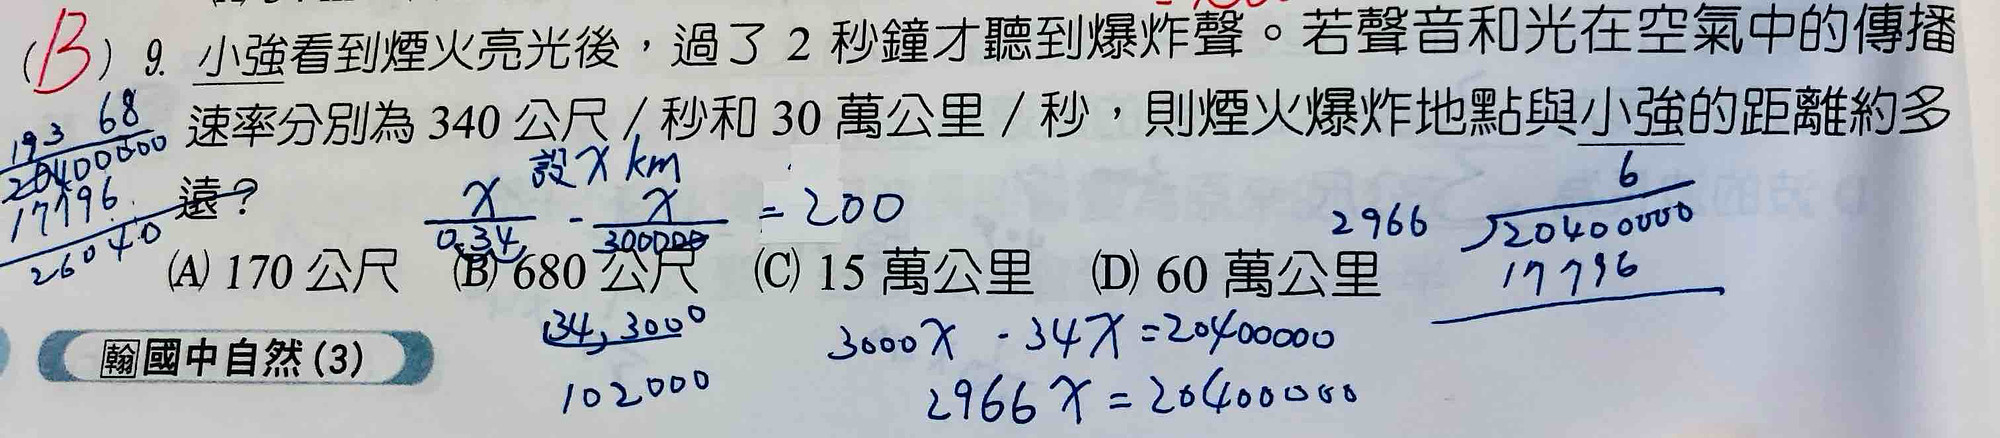 (B) 9. 小強看到煙火亮光後，過了 2 秒鐘才聽到爆炸聲。若聲音和光在空氣中的傳播
速率分別為 340 公尺／秒和 30 萬公里／秒，則煙火爆炸地點與小強的距離約多
遠？
設 x km
x/0.34 - x/300000 = 200
(A) 170 公尺 (B) 680 公尺 (C) 15 萬公里 (D) 60 萬公里
193 68
20400000
17796
26040
6
2966 20400000
17796
34, 3000
102000
3000x - 34x = 20400000
2966x = 20400000
翰 國中自然(3)